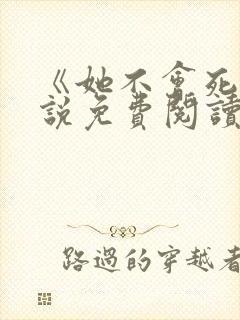 《她不會死
說免費閱讀
路過的穿越者